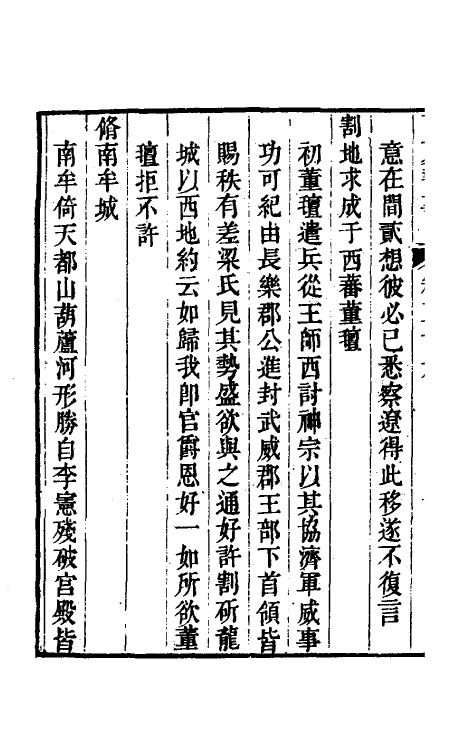 意在間貳想彼必已悉察遼得此移遂不復言
割地求成于西蕃董氊
初董氊遣兵從王師西討神宗以其協濟軍威事
功可紀由長樂郡公進封武威郡王部下首領皆
賜秩有差梁氏見其勢盛欲與之通好許割斫龍
城以西地約云如歸我卽官爵恩好一如所欲董
氊拒不許
脩南牟城
南牟倚天都山葫蘆河形勝自李憲殘破官殿皆